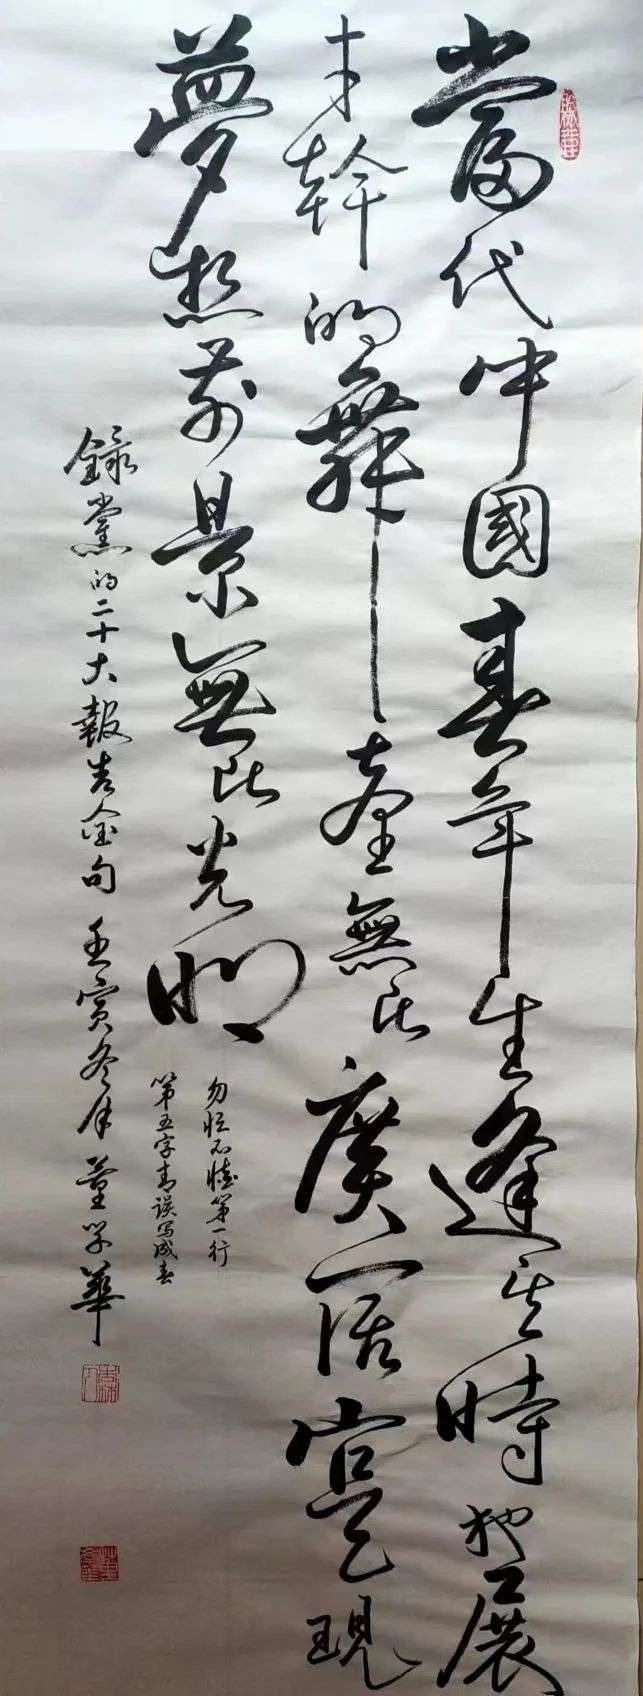 當代中國春年生逢其時施展
才幹的舞臺無比廣闊實現
夢想前景無比光明
勿忙不慎第一行
第五字青误写成春
錄黨的二十大報告金句 壬寅冬月 董学華